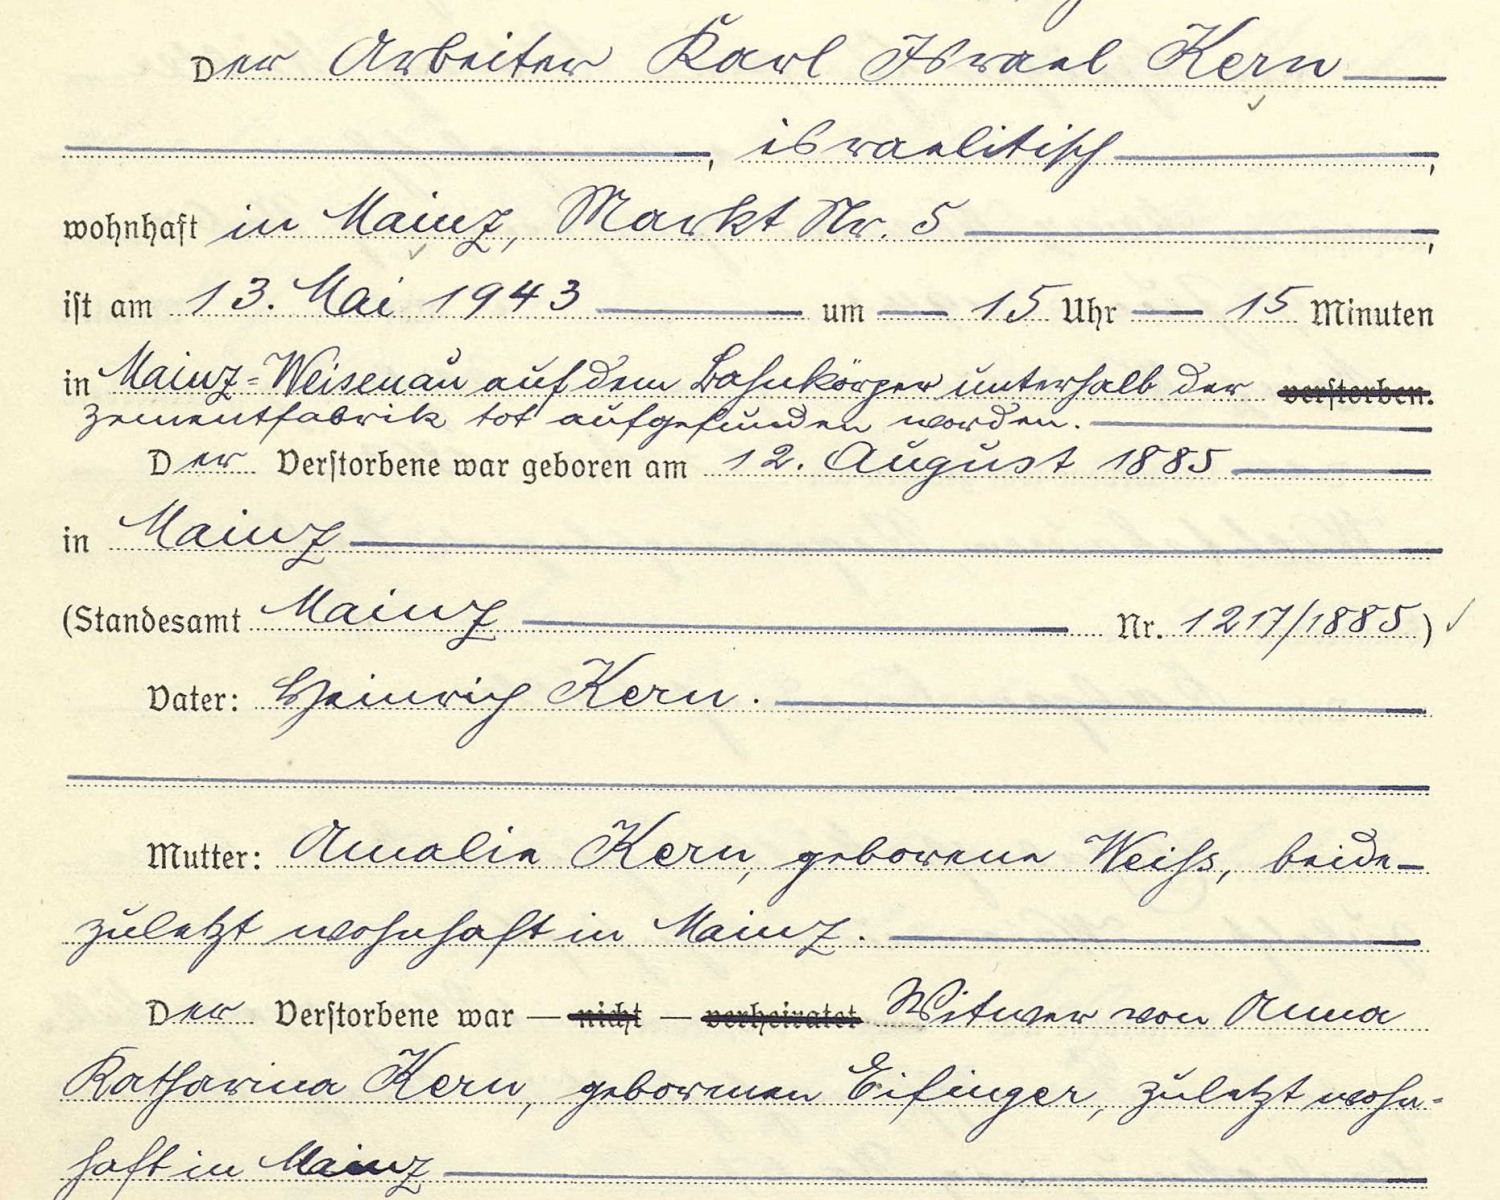 Der Arbeiter Karl Israel Kern
, israelitisch,
wohnhaft in Mainz, Markt Nr. 5,
ist am 13. Mai 1943 um 15 Uhr 15 Minuten
in Mainz-Weisenau auf dem Bahnkörper unterhalb der verstorben.
Zementfabrik tot aufgefunden worden.
Der Verstorbene war geboren am 12. August 1885
in Mainz
(Standesamt Mainz Nr. 1217/1885)
Vater: Heinrich Kern.
Mutter: Amalie Kern, geborene Weiß, beide
zuletzt wohnhaft in Mainz.
Der Verstorbene war — nicht — verheiratet Witwer von Anna
Katharina Kern, geborenen Eifinger, zuletzt wohn-
haft in Mainz